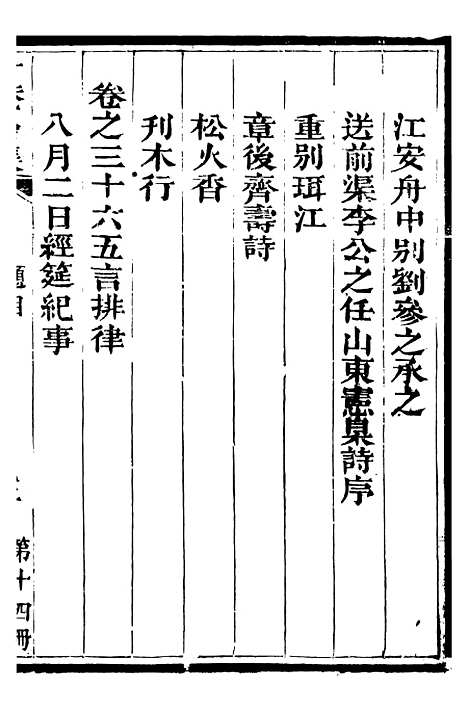 江安舟中別劉參之承之
送前渠李公之任山東憲臬詩序
重別珥江
章後齊壽詩
松火香
刋木行
卷之三十六五言排律
八月二日經筵紀事
題目
第十四册